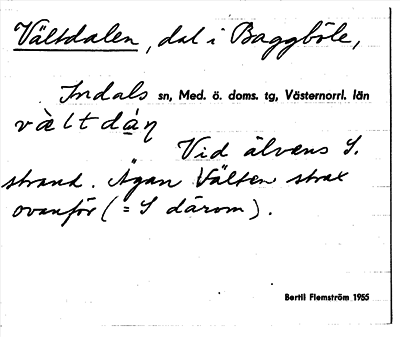 Vältdalen, dal i Baggböle,
Indals sn, Med. ö. doms. tg, Västernorrl. län
vὰltdάn̥
Vid älvens S.
strand. Ägan Välten strax
ovanför (= S därom).
Bertil Flemström 1955